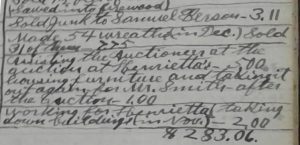 sawed into firewood)
Sold junk to Samuel Berson - 3.11
Made 54 wreaths in Dec.) Sold
31 of 7.75
Assisting the Auctioneer at the
auction at Henrietta's - 5.00
house furniture and taking it
out again for Mr. Smith - after
the auction - 1.00
Working for Henrietta taking
down buildings in Nov.) - 2.00
$283.06.